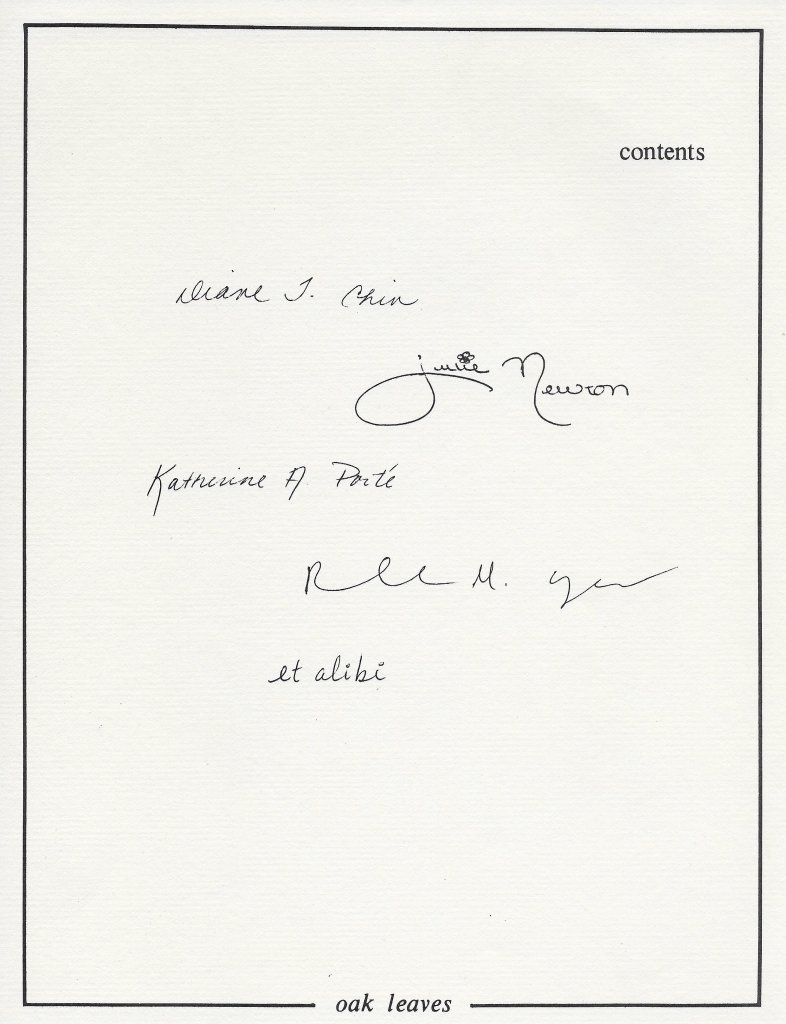 contents
Diane J. Chin
Julie Newton
Katherine A Porté
M.
et alibi
oak leaves